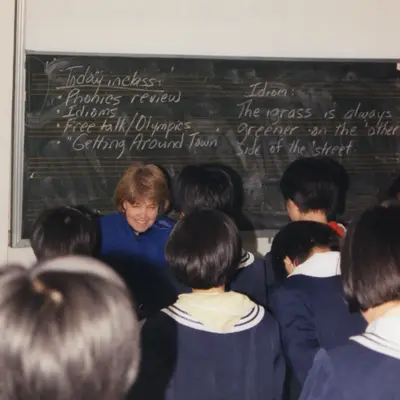 "Today in class:"
• Phonics review
• Idioms
• Free talk/Olympics
• "Getting Around Town
Idiom:
The grass is always
greener on the other
side of the street.